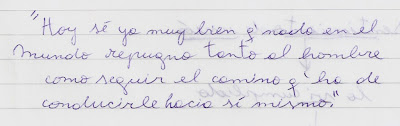 "Hoy sé yo muy bien q' nada en el
mundo repugna tanto al hombre
como seguir el camino q' ha de
conducirle hacia sí mismo."